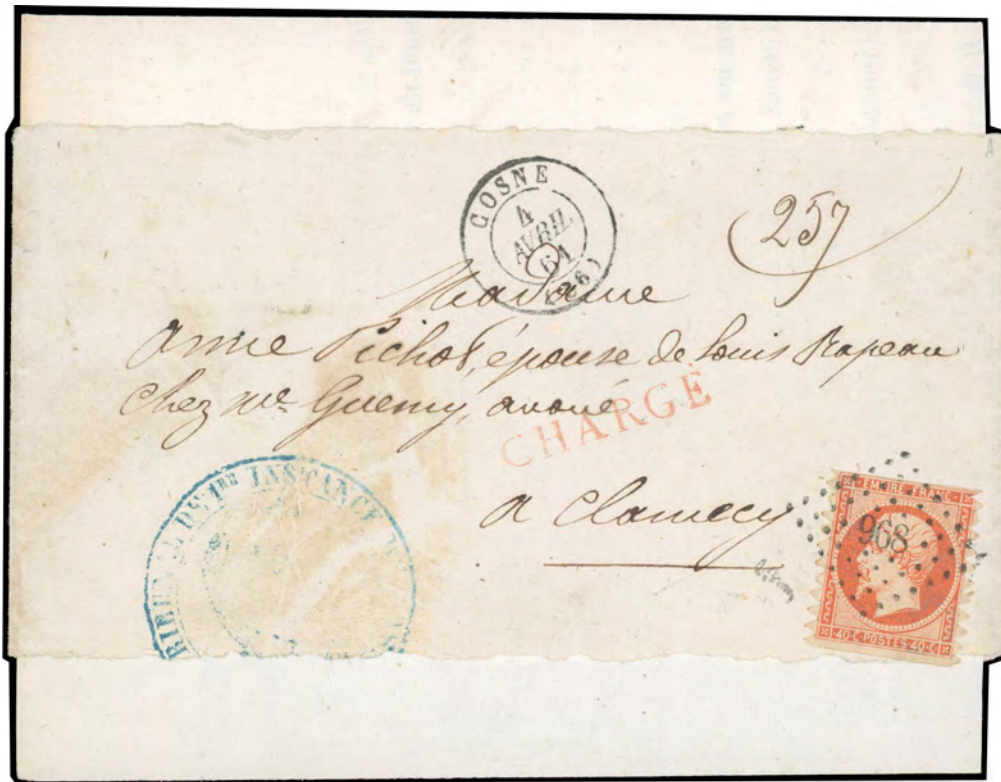 COSNE
4
AVRIL
61
257
Madame
Anne Pichot, épouse de Louis Rapeau
chez Me Guemy, avoué
CHARGÉ
TRIBUNAL DE 1RE INSTANCE
a Clamecy
EMPIRE FRANC
968
40 C POSTES 40 C